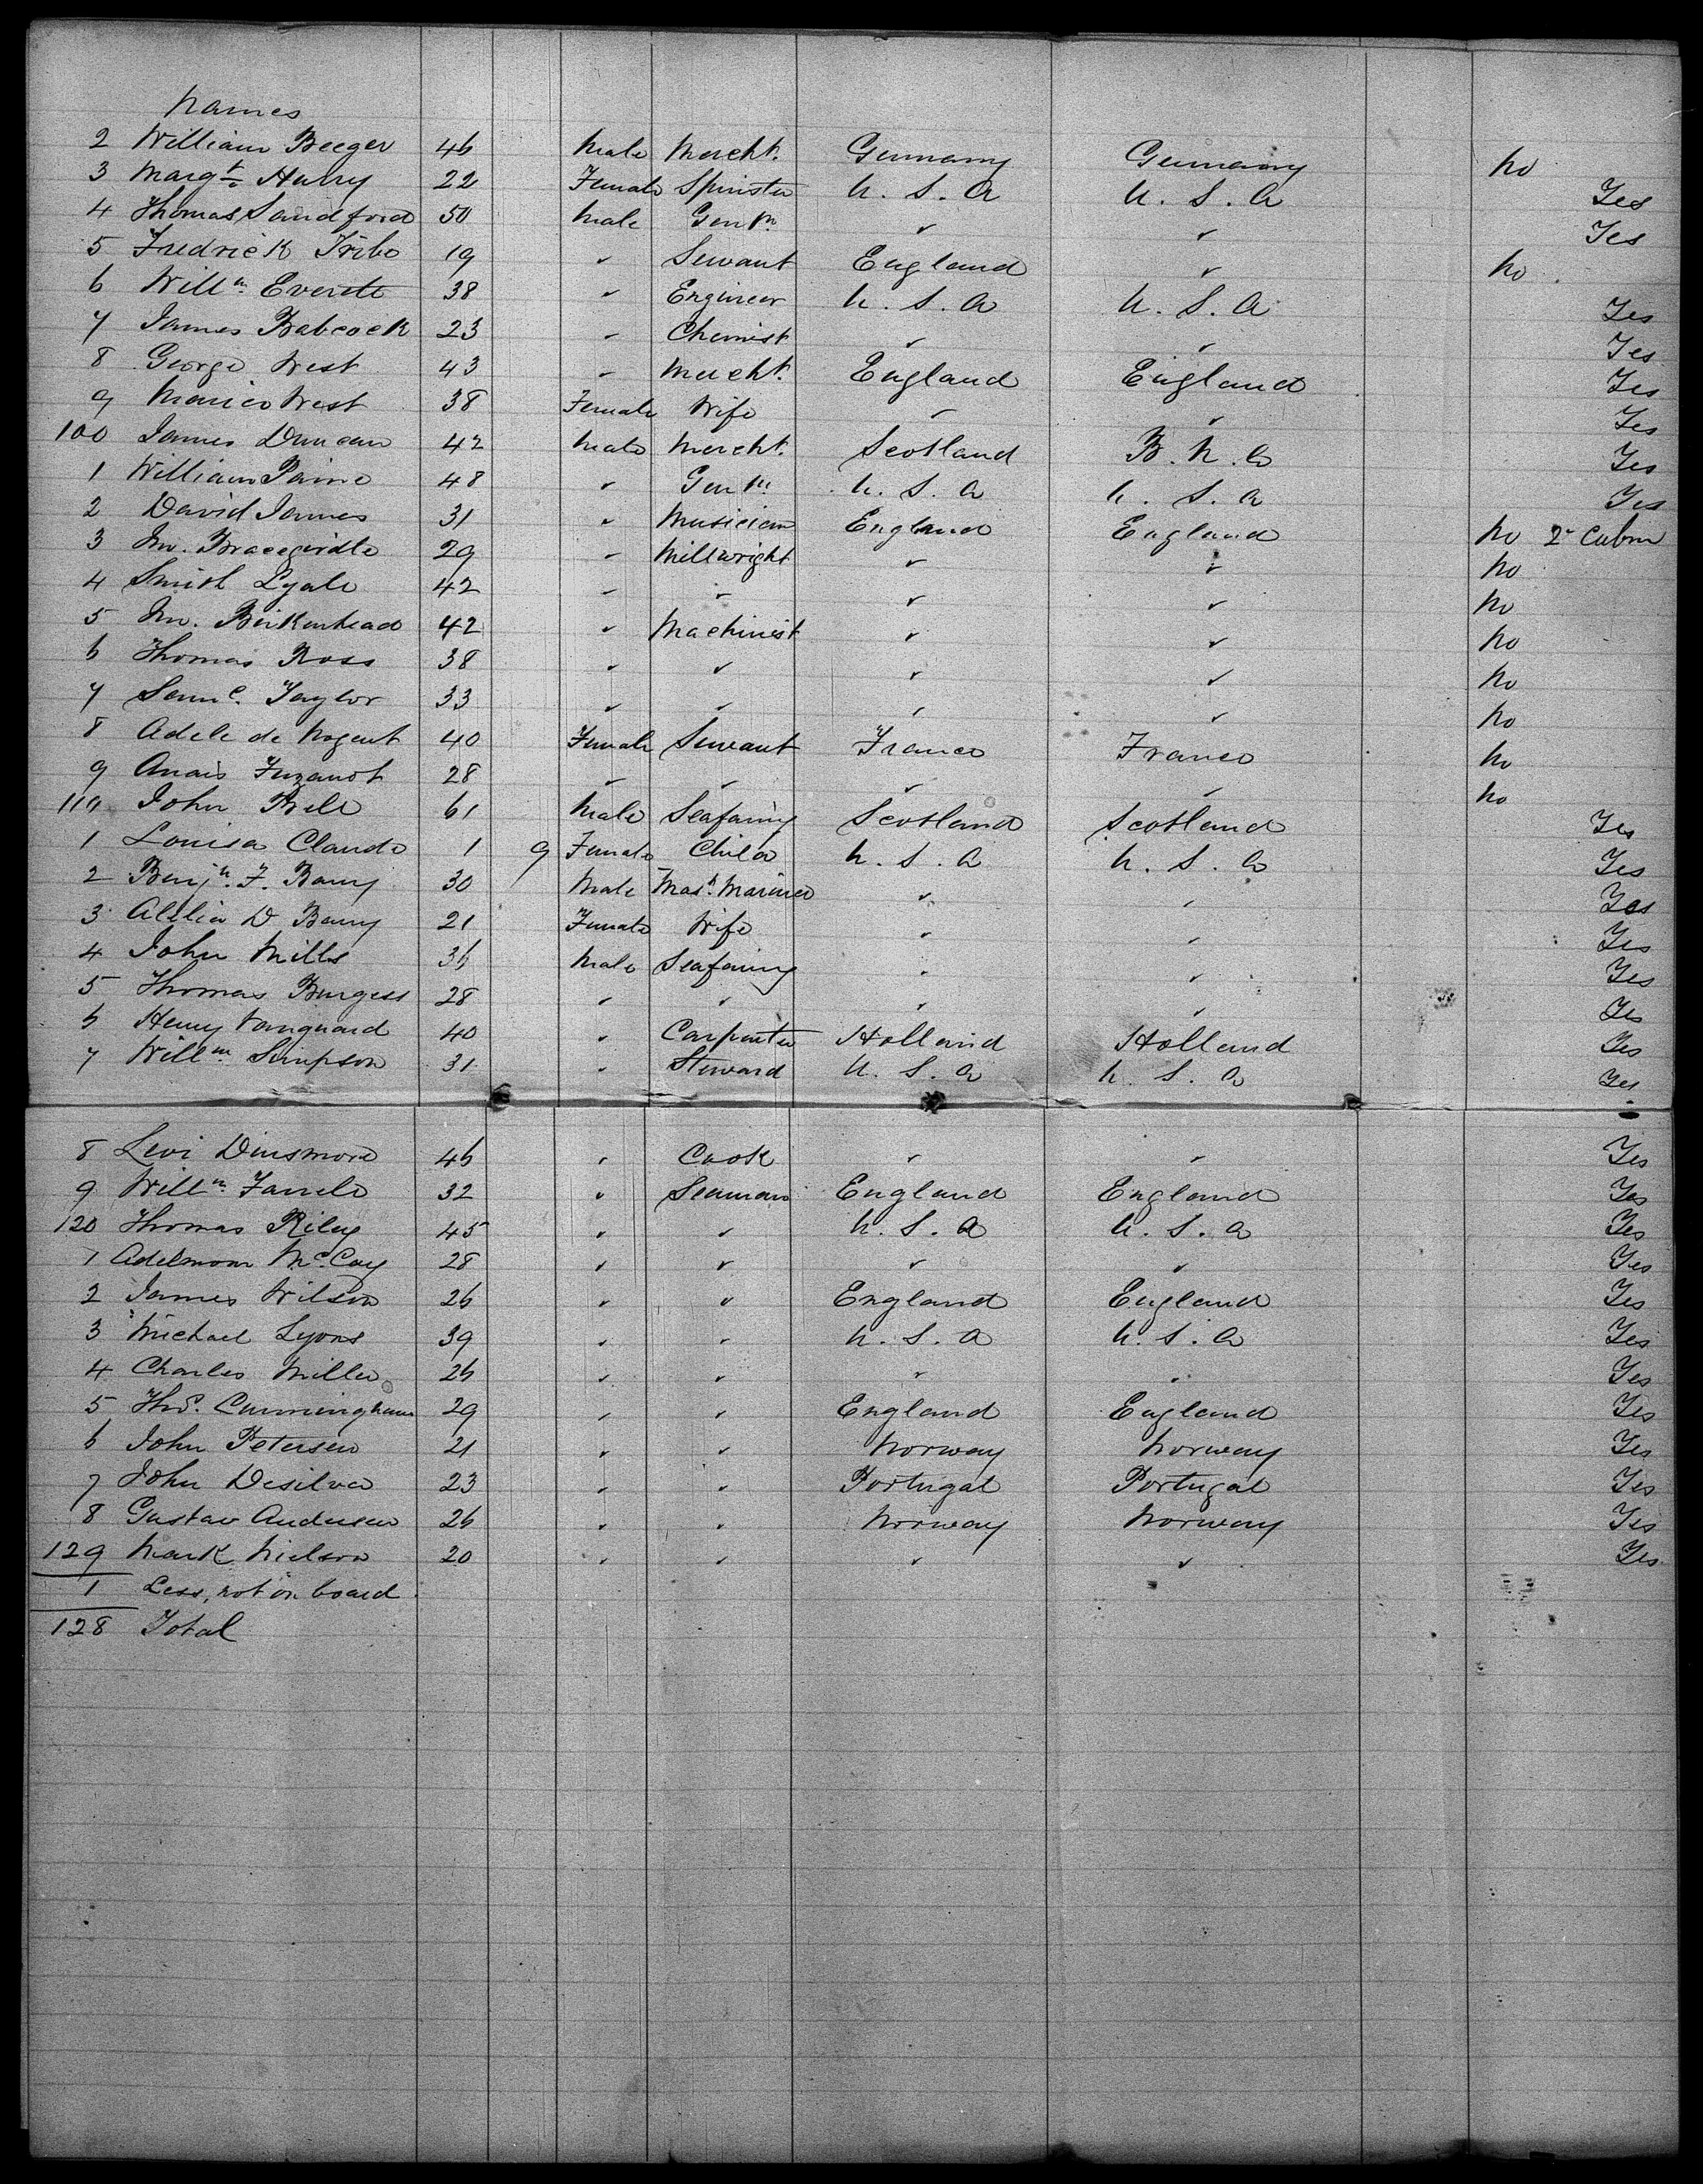 Names
2 William Beeger 46 Male Mercht. Germany Germany No
3 Margt. 22 Female Spinster U. S. A U. S. A Yes
4 Thomas Sandford 50 Male Gentn. " " Yes
5 Fredrick Tribe 19 " Servant England " No
6 Willm. Everett 38 " Engineer U. S. A U. S. A Yes
7 James Babcock 23 " Chemist " " Yes
8 George West 43 " Mercht. England England Yes
9 West 38 Female Wife " " Yes
100 James Duncan 42 Male Mercht. Scotland B. N. A Yes
1 William Paine 48 " Gentn. U. S. A U. S. A Yes
2 David James 31 " Musician England England No 2d Cabin
3 Jno. Bracegirdle 29 " Millwright " " No
4 Smith Lyale 42 " " " " No
5 Jno. Birkenhead 42 " Machinist " " No
6 Thomas Ross 38 " " " " No
7 Saml. Taylor 33 " " " " No
8 Adele de Nogent 40 Female Servant France France No
9 Anais Fuzanot 28 " " " " No
110 John Bell 61 Male Seafaring Scotland Scotland Yes
1 Louisa Claude 1 9 Female Child U. S. A U. S. A Yes
2 Benjn. F. Barry 30 Male Mast. Mariner " " Yes
3 D Barry 21 Female Wife " " Yes
4 John Mills 36 Male Seafaring " " Yes
5 Thomas Burgess 28 " " " " Yes
6 Henry Vanguard 40 " Carpenter Holland Holland Yes
7 Willm Simpson 31 " Steward U. S. A U. S. A Yes
8 Levi Dinsmore 46 " Cook " " Yes
9 Willm. 32 " Seaman England England Yes
120 Thomas Riley 45 " " U. S. A U. S. A Yes
1 McCoy 28 " " " " Yes
2 James Wilson 26 " " England England Yes
3 Michael Lyons 39 " " U. S. A U. S. A Yes
4 Charles Miller 26 " " " " Yes
5 Thos. Cunningham 29 " " England England Yes
6 John Petersen 21 " " Norway Norway Yes
7 John Desilva 23 " " Portugal Portugal Yes
8 Gustav Andersen 26 " " Norway Norway Yes
129 Mark Nielson 20 " " " " Yes
1 Less, not on board
128 Total